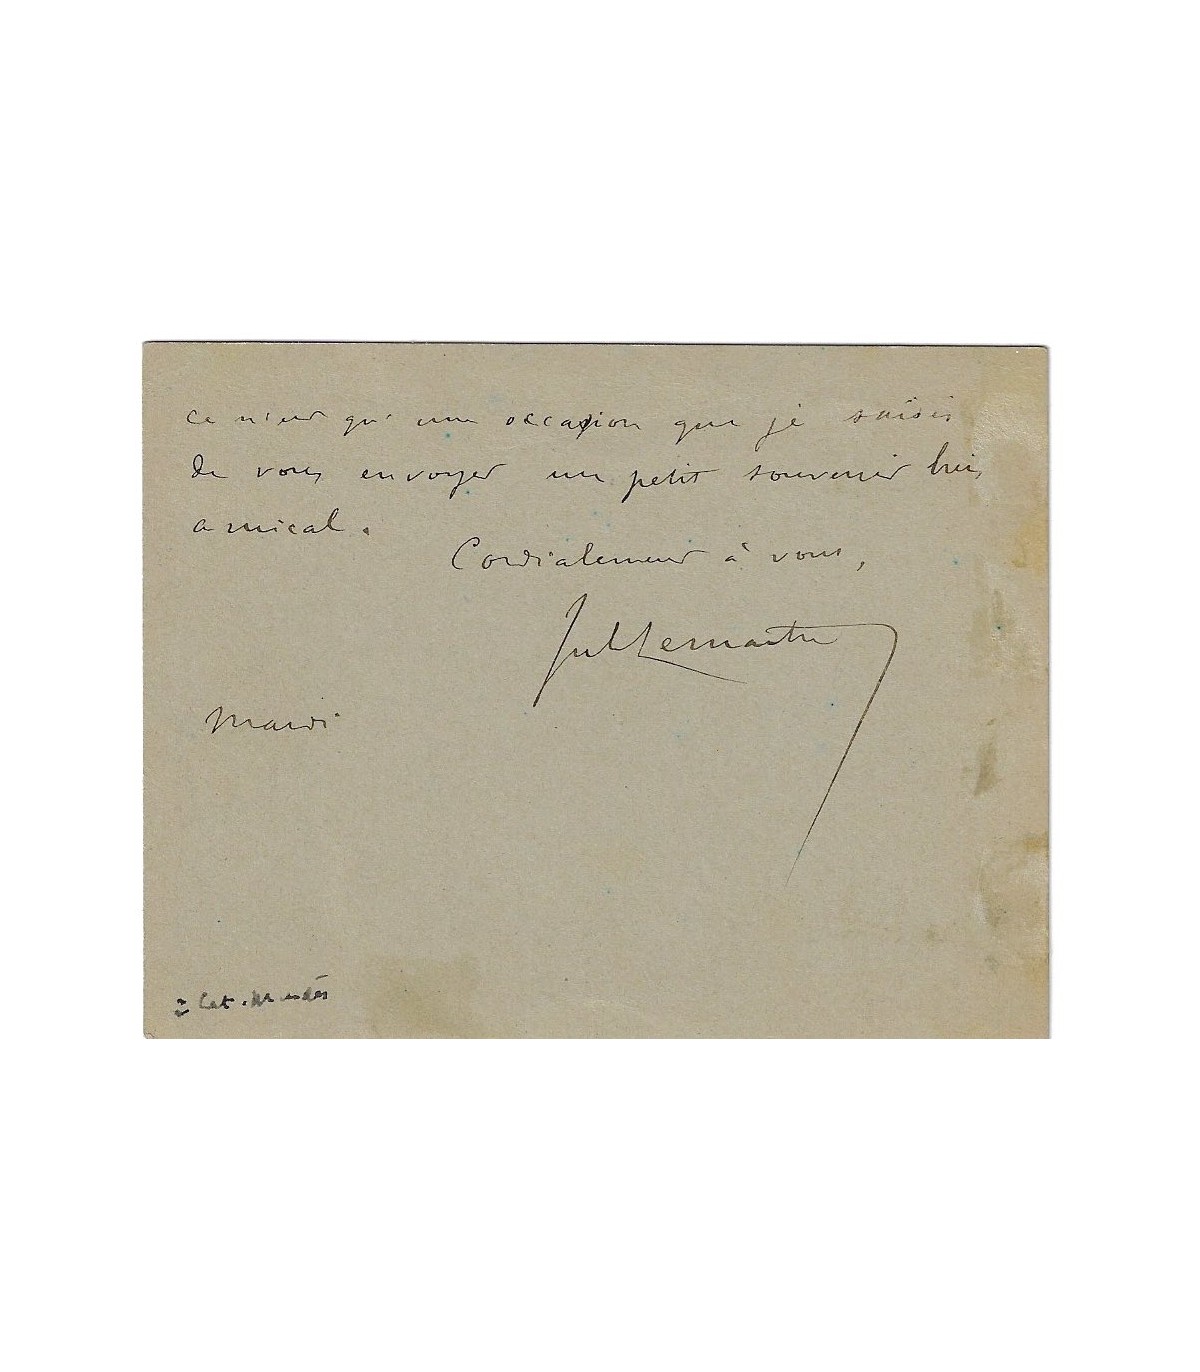 ce n'est qu'une occasion que je saisis
de vous envoyer un petit souvenir très
amical.
Cordialement à vous,
Jul Lemaitre
Mardi
à Cat. Mendès